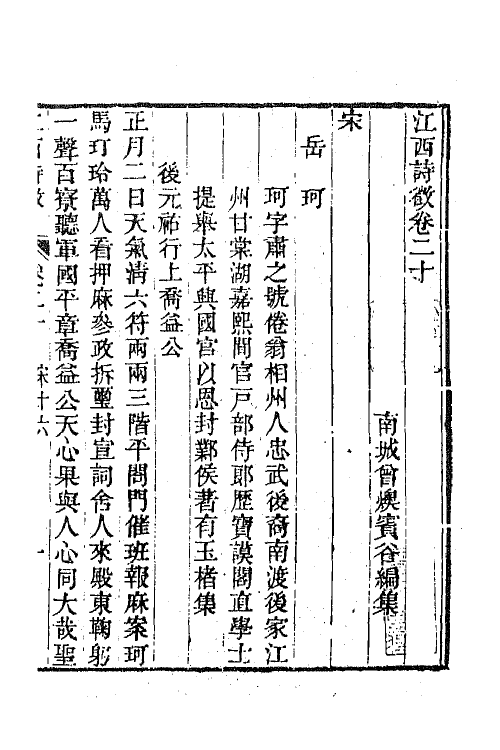 江西詩徵卷二十
南城曾燠賓谷編集
宋
岳珂
珂字肅之號倦翁相州人忠武後裔南渡後家江
州甘棠湖嘉熙間官戸部侍郎歷寶謨閣直學士
提舉太平興國宮以恩封鄴侯著有玉楮集
後元祐行上喬益公
正月二日天氣清六符兩兩三階平閤門催班報麻案珂
馬玎玲萬人看押麻參政拆璽封宣詞舍人來殿東鞠躬
一聲百寮聽軍國平章喬益公天心果與人心同大哉聖
江西詩徵 卷二十 宋十六 一